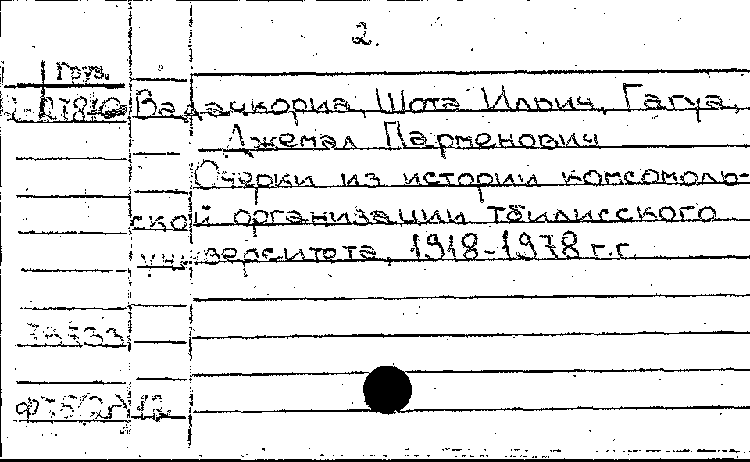 2.
Груз.
Вадачкориа, Шота Ильич, Гагуа,
Джемал Парменович
Очерки из истории комсомоль-
ской организации Тбилисского
университета, 1918-1978 г.г.
12